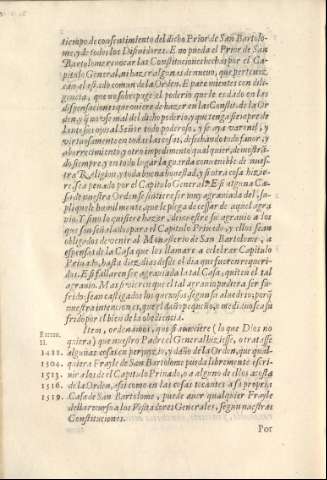 tiempo de consentimiento del dicho Prior de San Bartolo-
me, y de todos los Difinidores. E no pueda el Prior de San
Bartolome reuocar las Constituciones hechas por el Ca-
pitulo General, ni hazer algunas de nueuo, que pertenez-
can al estado comun de la Orden. E pare mientes con dili-
gencia, que no sobrepuge el poderio que le es dado en las
dispensaciones que ouiere de hazer en las Constit. de la Or-
den, y que no vse mal del dicho poderio, y que tenga siempre de-
lante sus ojos al Señor todo poderoso, y se aya varonil, y
virtuosamente en todas las cosas, desechando todo fauor, y
aborrecimiento, y otro impedimento qualquier, demostrã-
do siempre, y en todo lugar la guarda conuenible de nues-
tra Religion, y toda buena honestad, y si otra cosa hizie-
re, sea penado por el Capitulo General. E si alguna Ca-
sa de nuestra Orden se sintiere ser muy agrauiada del, su-
pliquele humilmente, que le plega de cessar de aquel agra-
uio. E si no lo quisiere hazer, demuestre su agrauio a los
que son señalados para el Capitulo Priuado, y ellos sean
obligados de venir al Monasterio de San Bartolome, a
espensas de la Casa que los llamare a celebrar Capitulo
Priuado, hasta diez dias desde el dia que fueren requeri-
dos. E si fallaren ser agrauiada la tal Casa, quiten el tal
agrauio. Mas si vieren que el tal agrauio pudiera ser su-
frido: sean castigados los quexosos segun su aluedrio, porq̃
nuestra intencion es, que el daño pequeño, o mediano sea su-
frido por el bien de la obediencia.
Item, ordenamos, que si acaeciere (lo que Dios no
quiera) que nuestro Padre el General hiziesse, otra esse
1481. algunas cosas en perjuyzio, y daño de la Orden, que qual-
1504. quiera Frayle de San Bartolome pueda libremente escri-
1513. uir a los de el Capitulo Priuado, o a alguno de ellos acosta
1516. de la Orden, assi como en las cosas tocantes a su propria
1519. Casa de San Bartolome, puede auer qualquier Frayle
della recurso a los Visitadores Generales, segun nuestras
Constituciones.
Por